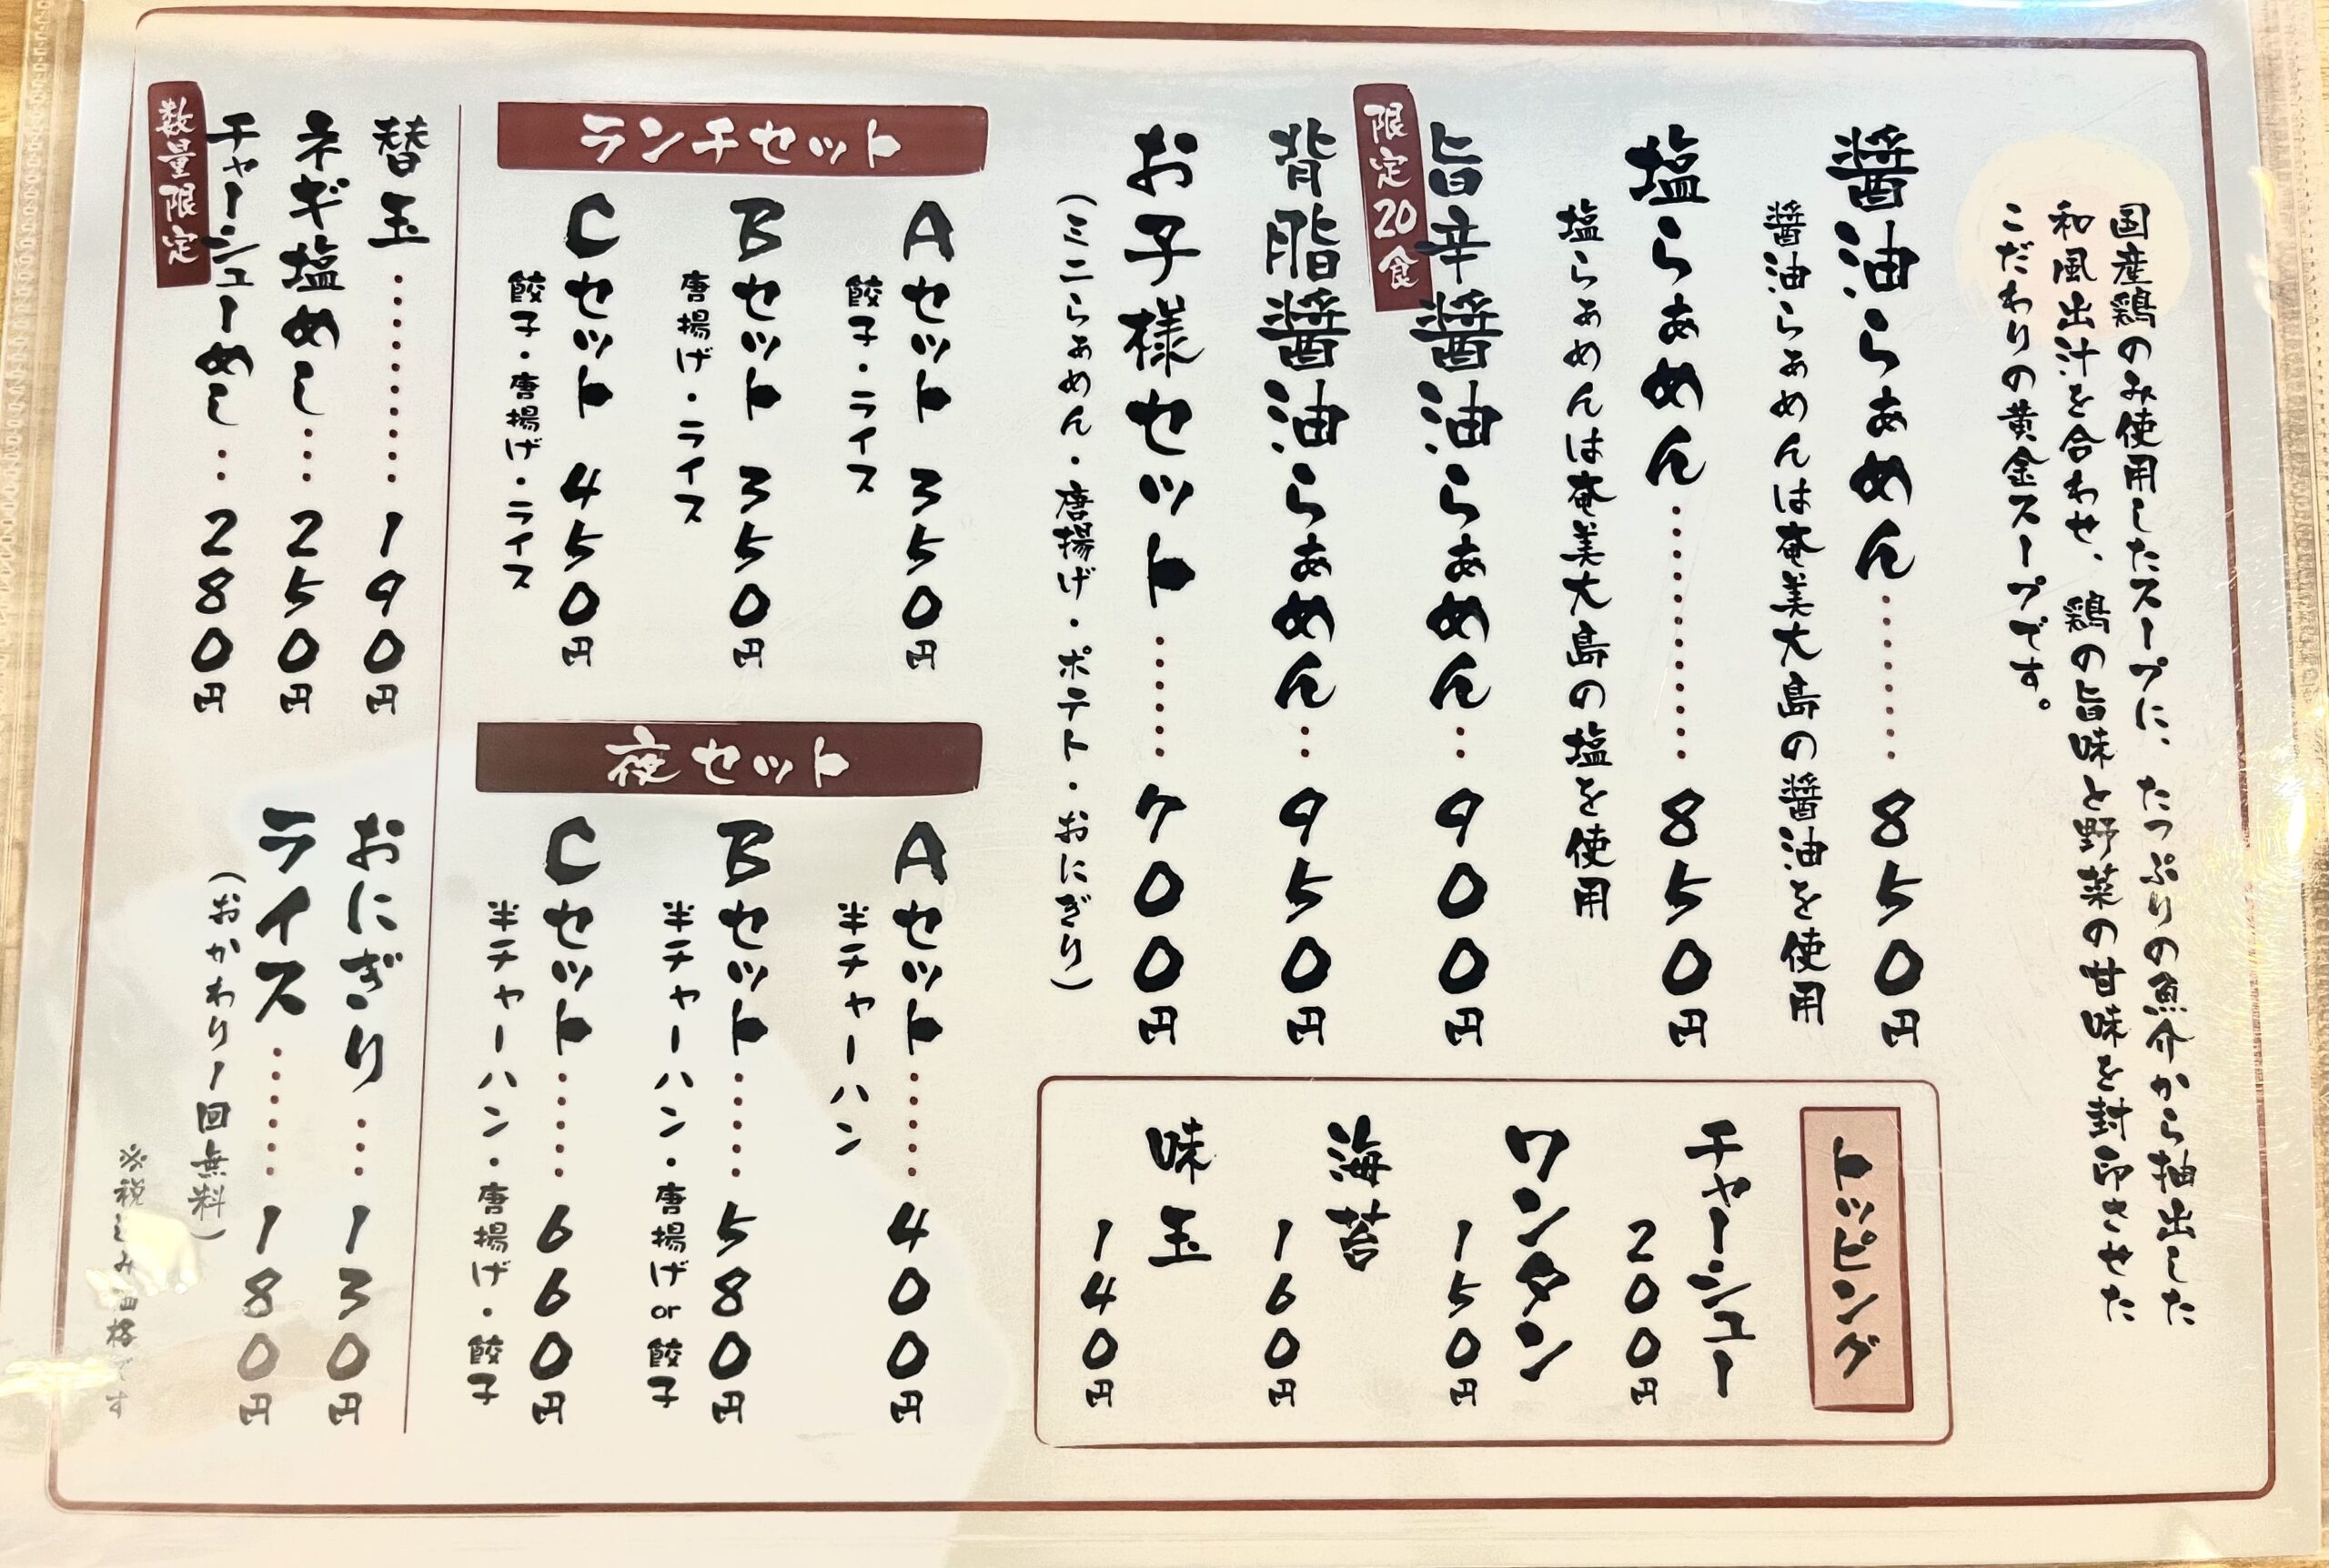 国産鶏のみ使用したスープに、たっぷりの魚介から抽出した
和風出汁を合わせ、鶏の旨味と野菜の甘味を封印させた
こだわりの黄金スープです。
醤油らぁめん……850円
醤油らぁめんは奄美大島の醤油を使用
塩らぁめん………850円
塩らぁめんは奄美大島の塩を使用
限定20食
旨辛醤油らぁめん…900円
背脂醤油らぁめん…950円
お子様セット……700円
(ミニらぁめん・唐揚げ・ポテト・おにぎり)
トッピング
チャーシュー
200円
ワンタン
150円
海苔
160円
味玉
140円
ランチセット
Aセット 350円
餃子・ライス
Bセット 350円
唐揚げ・ライス
Cセット 450円
餃子・唐揚げ・ライス
夜セット
Aセット……400円
半チャーハン
Bセット……580円
半チャーハン・唐揚げor餃子
Cセット……660円
半チャーハン・唐揚げ・餃子
替玉…………190円
ネギ塩めし…250円
チャーシューめし…280円
数量限定
おにぎり…130円
ライス……180円
(おかわり1回無料)
※税込み価格です